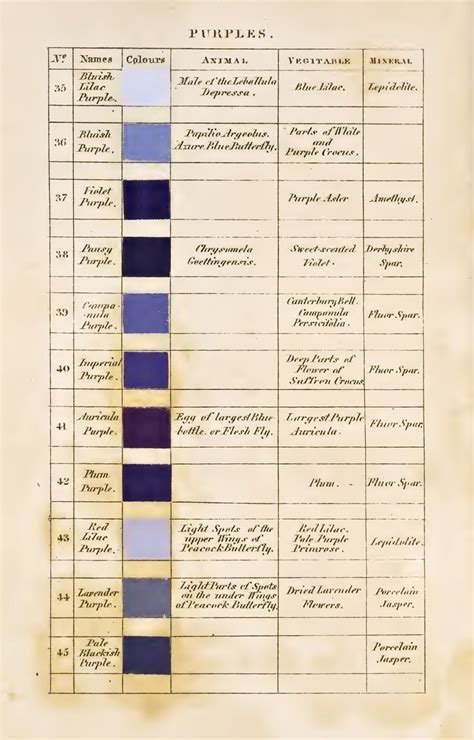 PURPLES.
Nº Names Colours ANIMAL VEGITABLE MINERAL
35
Bluish
Lilac
Purple.
Male of the Lebellula
Depressa.
Blue Lilac.
Lepidolite.
36
Bluish
Purple.
Papilio Argeolus.
Azure Blue Butterfly.
Parts of White
and
Purple Crocus.
37
Violet
Purple.
Purple Aster
Amethyst.
38
Pansy
Purple.
Chrysomela
Goettingensis.
Sweet-scented
Violet.
Derbyshire
Spar.
39
Campa-
nula
Purple.
Canterbury Bell.
Campanula
Persicifolia.
Fluor Spar.
40
Imperial
Purple.
Deep Parts of
Flower of
Saffron Crocus.
Fluor Spar.
41
Auricula
Purple.
Egg of largest Blue
bottle, or Flesh Fly.
Largest Purple
Auricula.
Fluor Spar.
42
Plum
Purple.
Plum.
Fluor Spar.
43
Red
Lilac
Purple.
Light Spots of the
upper Wings of
Peacock Butterfly.
Red Lilac.
Pale Purple
Primrose.
Lepidolite.
44
Lavender
Purple.
Light Parts of Spots
on the under Wings
of Peacock Butterfly.
Dried Lavender
Flowers.
Porcelain
Jasper.
45
Pale
Blackish
Purple.
Porcelain
Jasper.